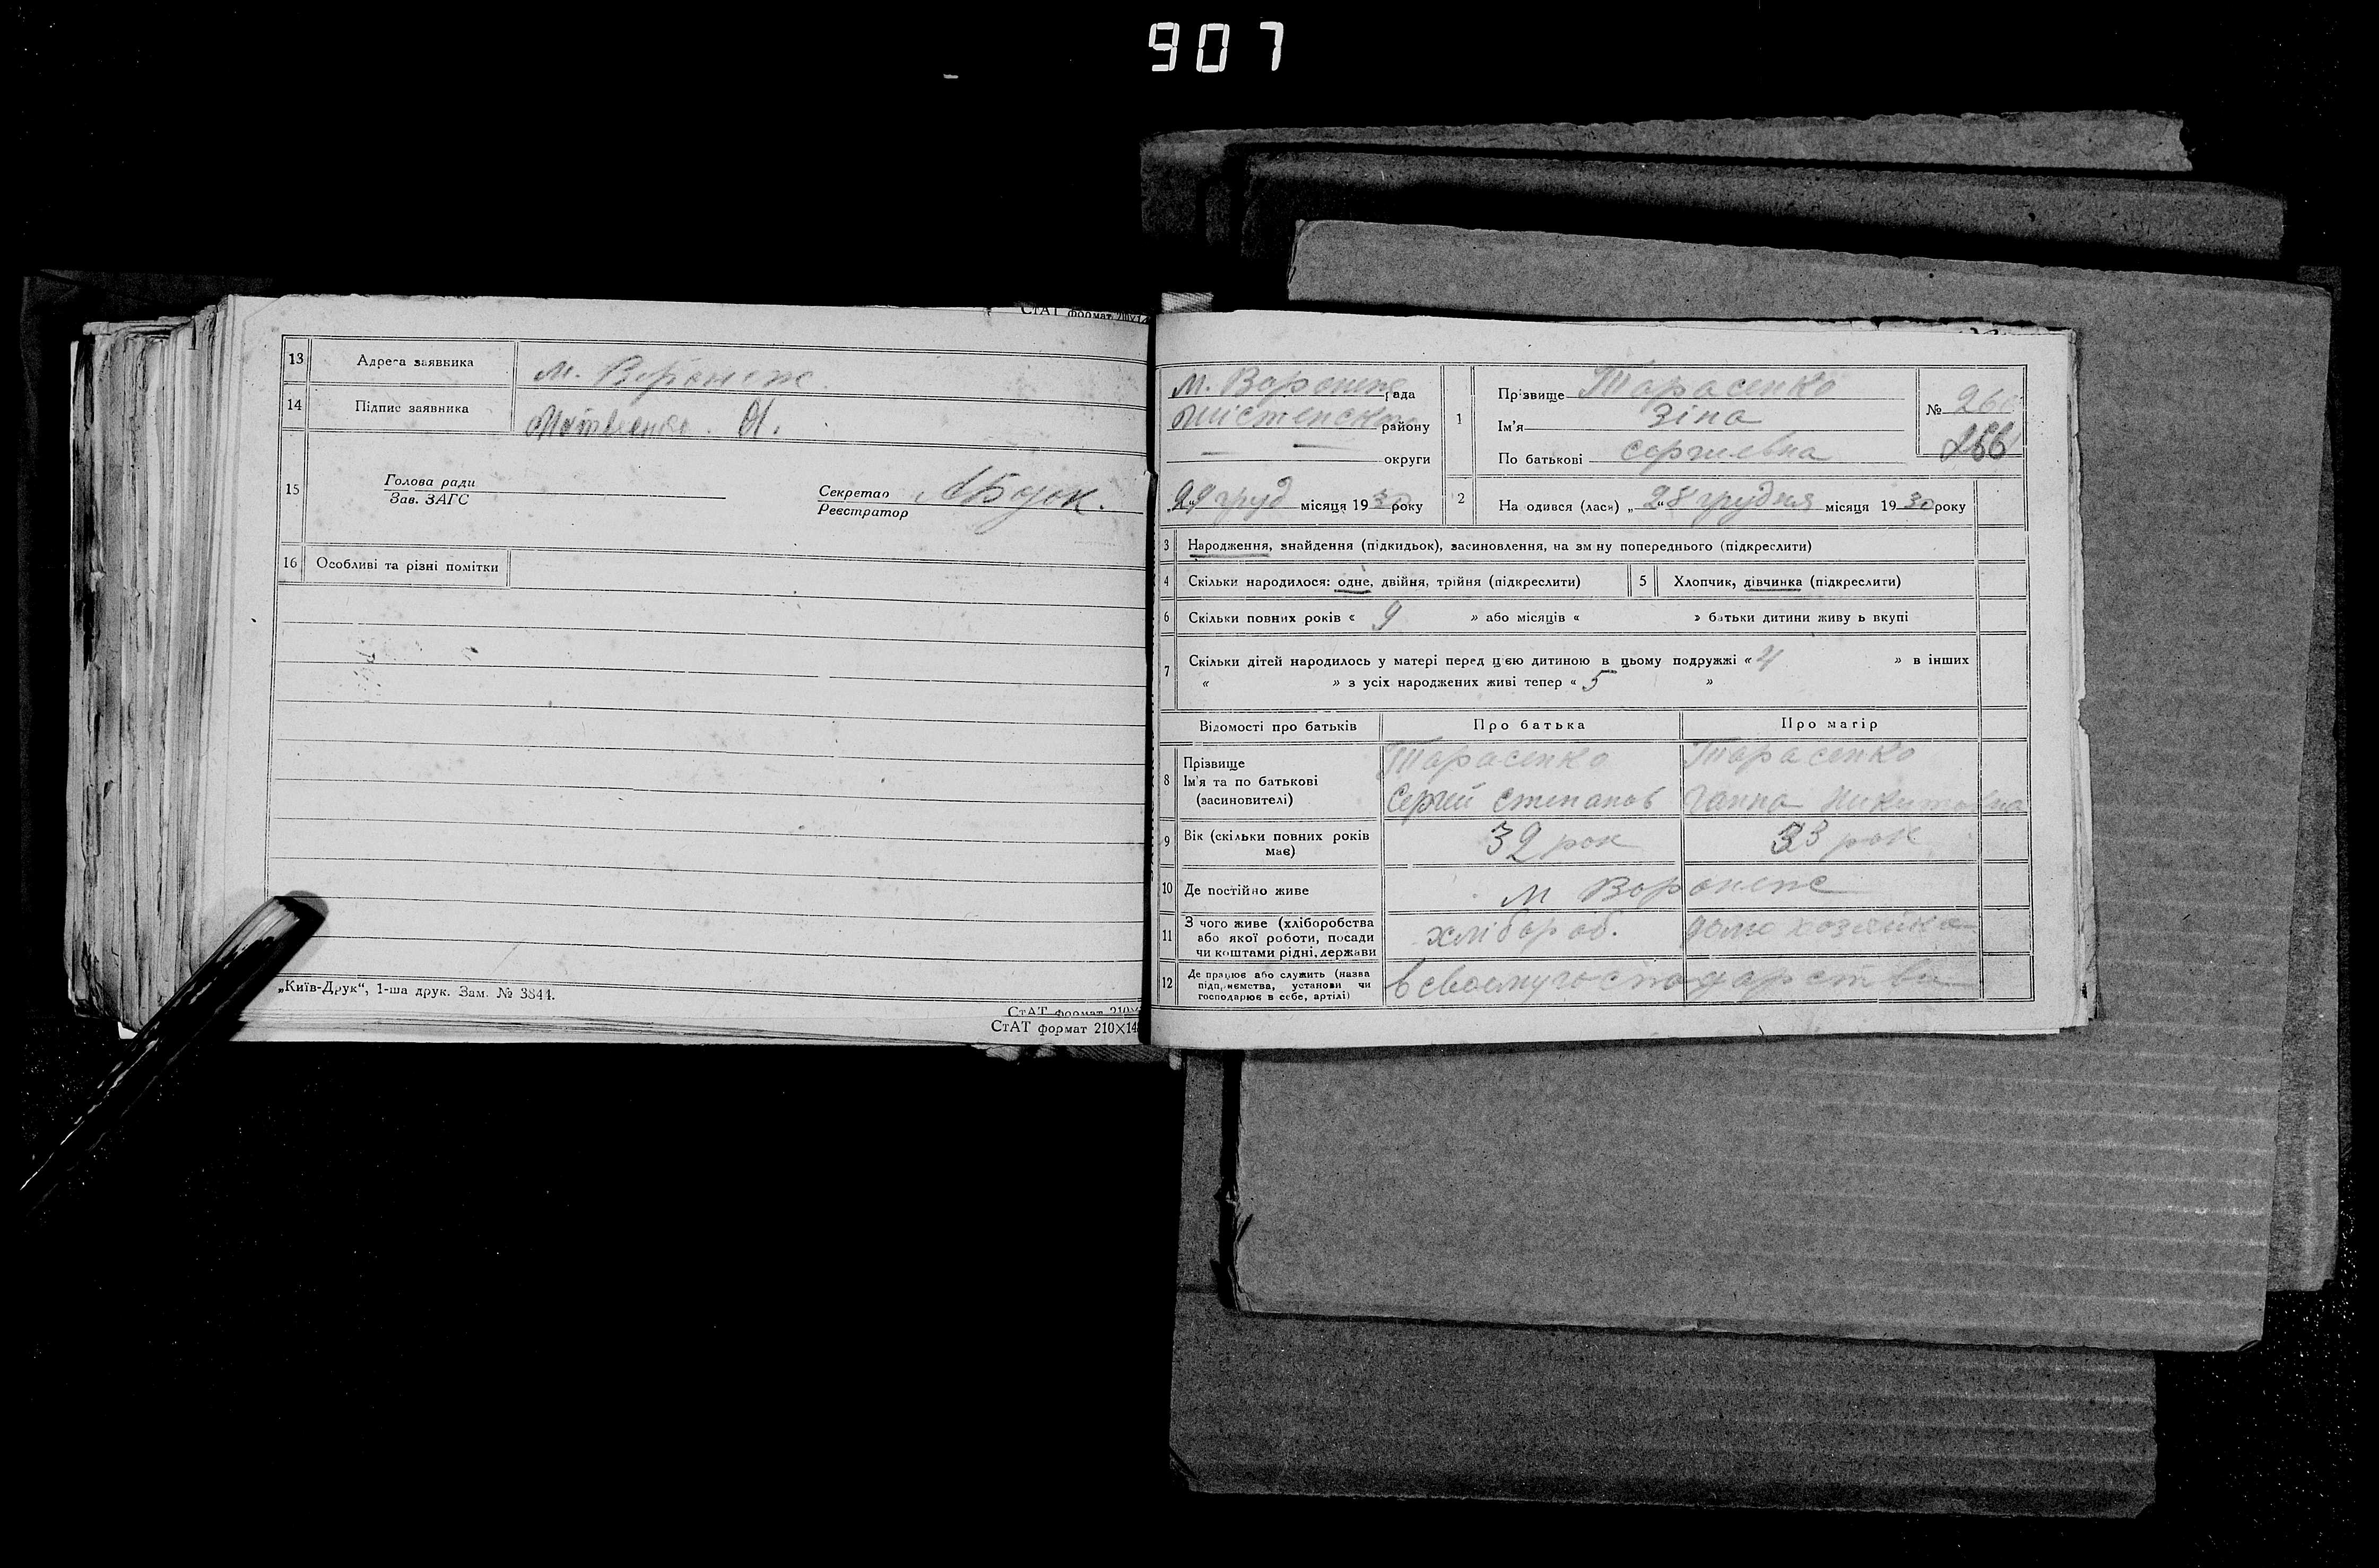 907
СтАТ формат 210×14
13 Адреса заявника м. Воронеж
14 Підпис заявника Матвіенко. О.
15 Голова ради
Зав. ЗАГС
Секретар
Реєстратор
16 Особливі та різні помітки
„Київ-Друк“, 1-ша друк. Зам. № 3844.
СтАТ формат 210×
СтАТ формат 210×148
м. Воронеж рада
району
округи
29 груд місяця 1930 року
1 Прізвище Тарасенко
Ім'я Зіна
По батькові Сергиевна
№ 266
266
2 На одився (лася) „28“ грудня місяця 1930 року
3 Народження, знайдення (підкидьок), засиновлення, на зм ну попереднього (підкреслити)
4 Скільки народилося: одне, двійня, трійня (підкреслити) 5 Хлопчик, дівчинка (підкреслити)
6 Скільки повних років « 9 » або місяців « » батьки дитини живу ь вкупі
7 Скільки дітей народилось у матері перед цією дитиною в цьому подружжі « 4 » в інших
« » з усіх народжених живі тепер « 5 »
Відомості про батьків Про батька Про матір
8 Прізвище Тарасенко Тарасенко
Ім'я та по батькові
(засновителі) Сергей Степанов Ганна Никитовна
9 Вік (скільки повних років
має) 32 рок 33 рок
10 Де постійно живе м Воронеж
11 З чого живе (хліборобства
або якої роботи, посади
чи коштами рідні, держави хлібороб. домохозяйка
12 Де працює або служить (назва
підприємства, установи чи
господарює в себе, артілі) в своему господарстви